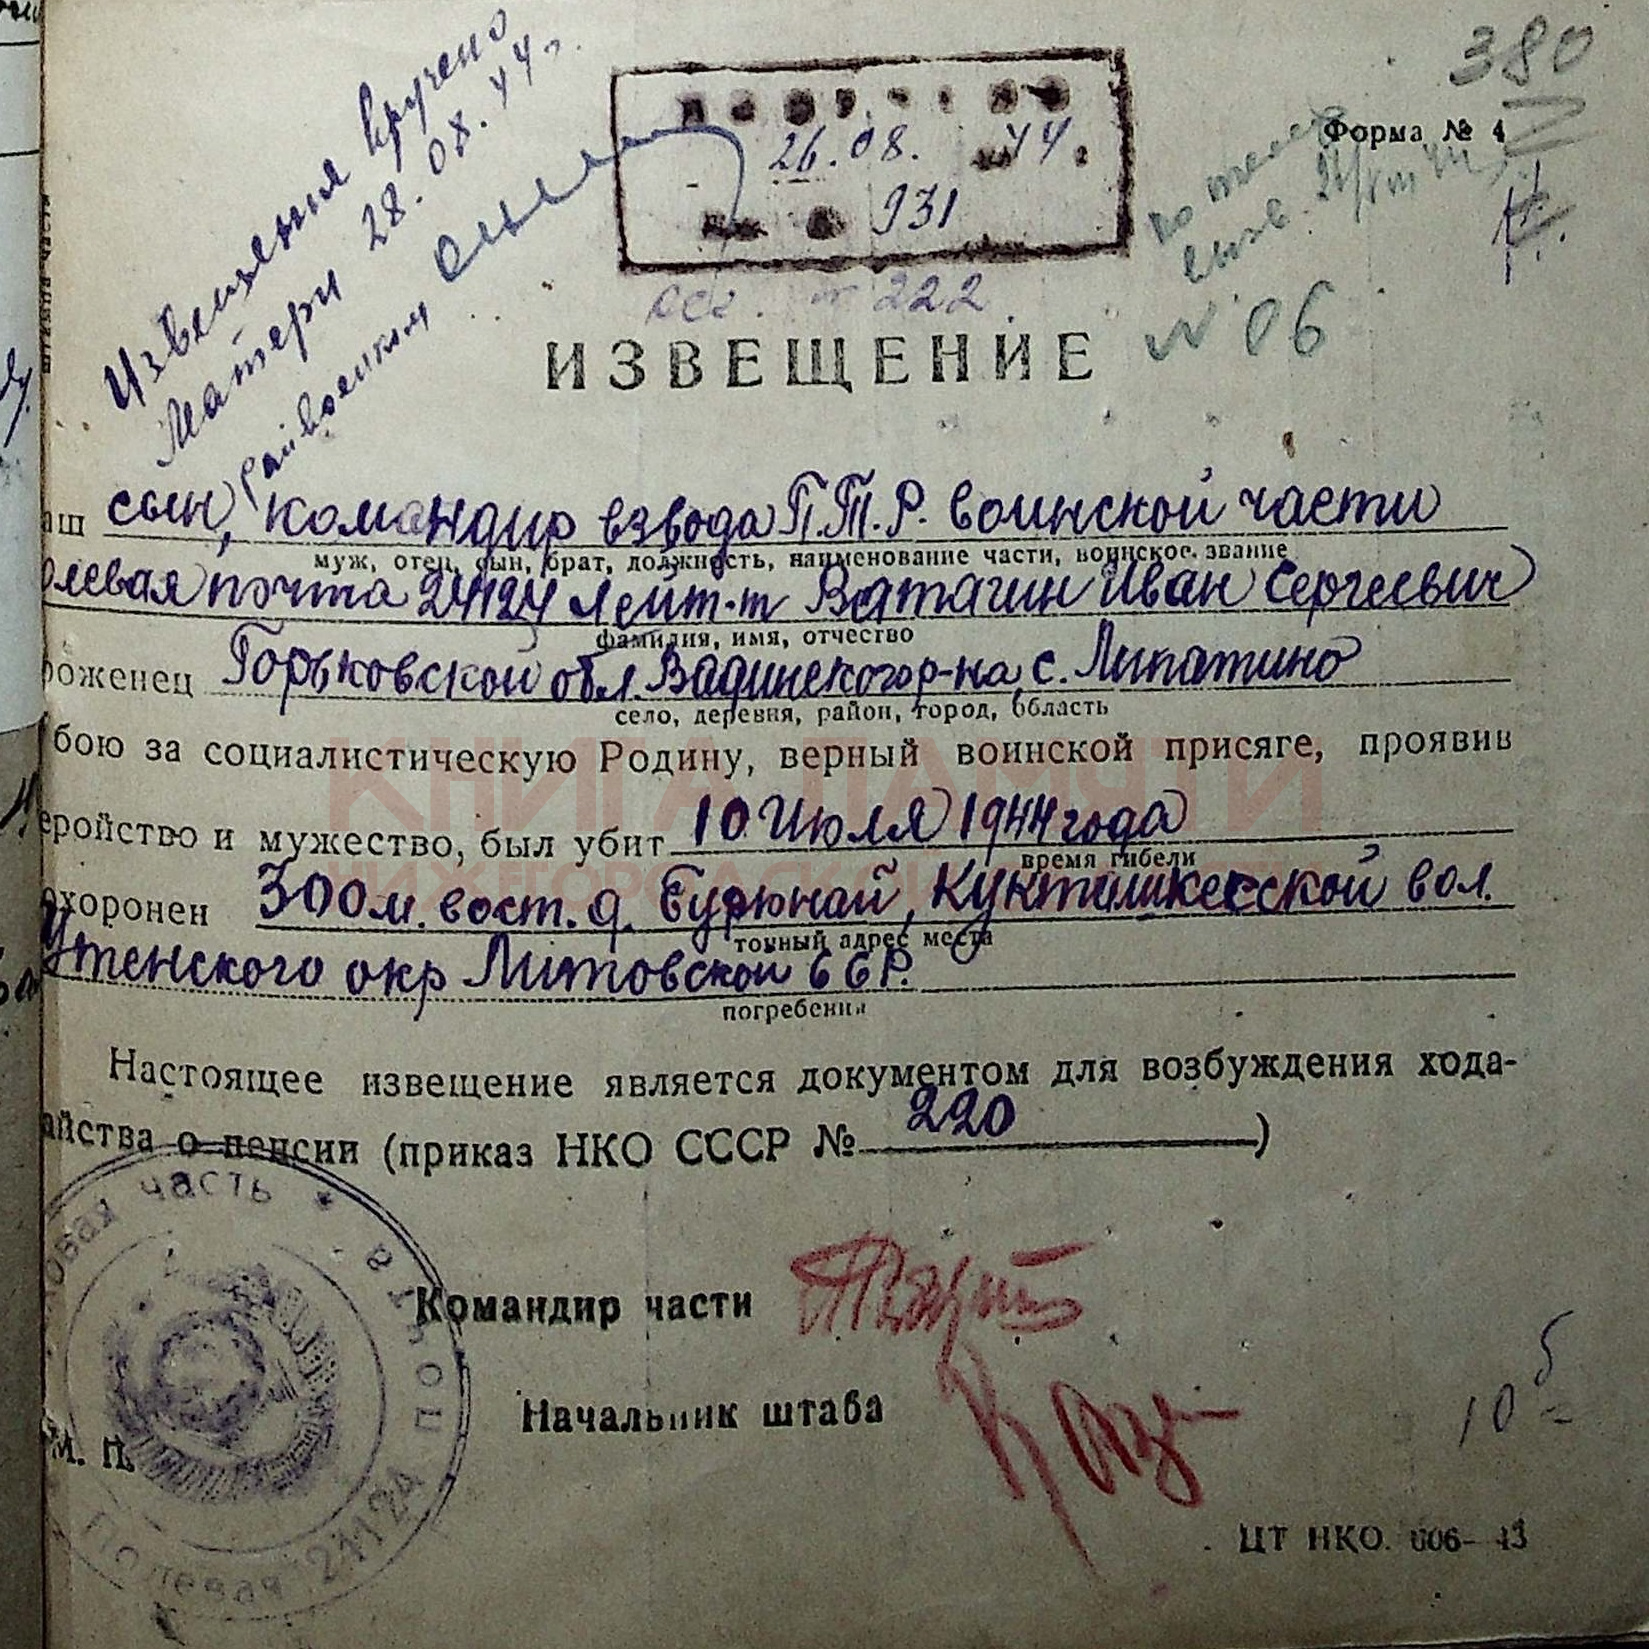 380
Форма № 4
Извещения вручено
Матери 28.08.44 г.
райвоенком
26.08. 44 г
931
222
№ 06
ИЗВЕЩЕНИЕ
аш сын, командир взвода П.Т.Р. воинской части
муж, отец, сын, брат, должность, наименование части, воинское звание
олевая почта 24124 лейт-т Ватагин Иван Сергеевич
фамилия, имя, отчество
роженец Горьковской обл. Вадинского р-на, с. Липатино
село, деревня, район, город, область
бою за социалистическую Родину, верный воинской присяге, проявив
еройство и мужество, был убит 10 Июля 1944 года
время гибели
охоронен 300 м. вост. д. Бурюнай, Куктишкесской вол.
точный адрес места
Утенского окр Литовской ССР.
погребения
КНИГА ПАМЯТИ
НИЖЕГОРОДСКОЙ
Настоящее извещение является документом для возбуждения хода-
айства о пенсии (приказ НКО СССР № 220)
Командир части
Начальник штаба
М. П.
Полевая почта 24124
овая часть
10
ЦТ НКО. 006-43